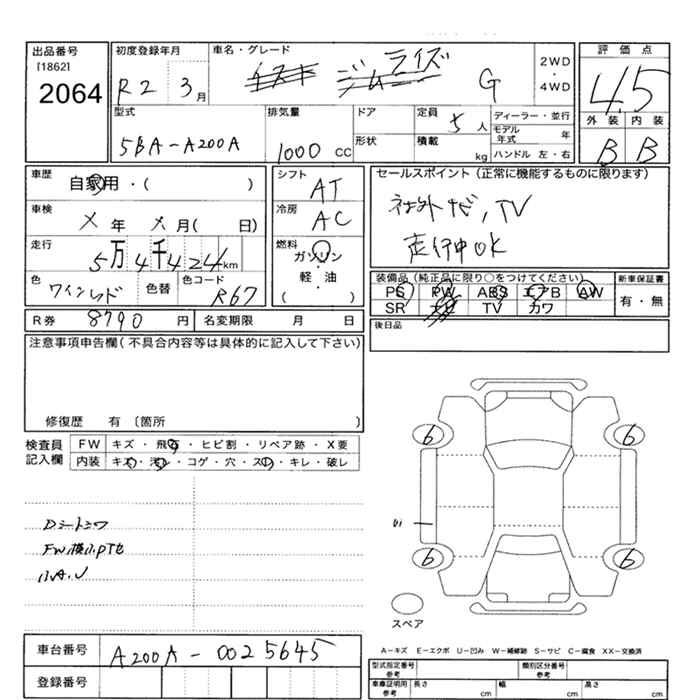 出品番号 [1862] 2064
初度登録年月 R2 3月
車名・グレード ライズ G
2WD・4WD
評価点 4.5
外装 内装
B B
型式 5BA-A200A
排気量 1000 CC
ドア 形状
定員 5人
積載 kg
ディーラー・並行
モデル年式 年
ハンドル 左・右
車歴 自家用・( )
車検 X年 X月( 日)
走行 5万4千424km
色 ワインレッド 色替 色コード R67
シフト AT
冷房 AC
燃料 ガソリン・軽・油 ( )
セールスポイント(正常に機能するものに限ります)
社外ナビ,TV
走行中OK
装備品(純正品に限り○をつけてください)
PS PW ABS エアB AW
SR TV カワ
新車保証書 有・無
後日品
R券 8790円 名変期限 月 日
注意事項申告欄(不具合内容等は具体的に記入して下さい)
修復歴 有〔箇所 〕
検査員記入欄
FW キズ・飛石・ヒビ割・リペア跡・X要
内装 キズ・汚れ・コゲ・穴・スレ・キレ・破レ
Dシートシワ
FW横小PTセ
小A.U
6 6
6 6
スペア
A-キズ E-エクボ U-凹み W-補修跡 S-サビ C-腐食 XX-交換済
車台番号 A200A-0025645
登録番号
型式指定番号 参考 類別区分番号 参考
車庫証明用 参考 長さ cm 幅 cm 高さ cm